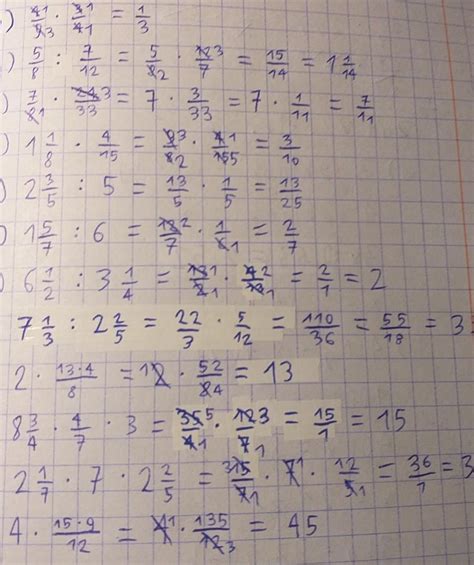 ) 4̶1/9̶3 · 3̶1/4̶1 = 1/3
) 5/8 : 7/12 = 5/8̶2 · 1̶2̶3/7 = 15/14 = 1 1/14
) 7/8̶1 · 2̶4̶3/33 = 7 · 3/33 = 7 · 1/11 = 7/11
) 1 1/8 · 4/15 = 9̶3/8̶2 · 4̶1/1̶5̶5 = 3/10
) 2 3/5 : 5 = 13/5 · 1/5 = 13/25
) 1 5/7 : 6 = 1̶2̶2/7 · 1/6̶1 = 2/7
) 6 1/2 : 3 1/4 = 1̶3̶1/2̶1 · 4̶2/1̶3̶1 = 2/1 = 2
7 1/3 : 2 2/5 = 22/3 · 5/12 = 110/36 = 55/18 = 3
2 · 13·4/8 = 12̶ · 52/8̶4 = 13
8 3/4 · 4/7 · 3 = 3̶5̶5/4̶1 · 1̶2̶3/7̶1 = 15/1 = 15
2 1/7 · 7 · 2 2/5 = 31̶5̶/7̶1 · 7̶1 · 12/5̶1 = 36/1 = 3
4 · 15·9/12 = 4̶1 · 135/1̶2̶3 = 45